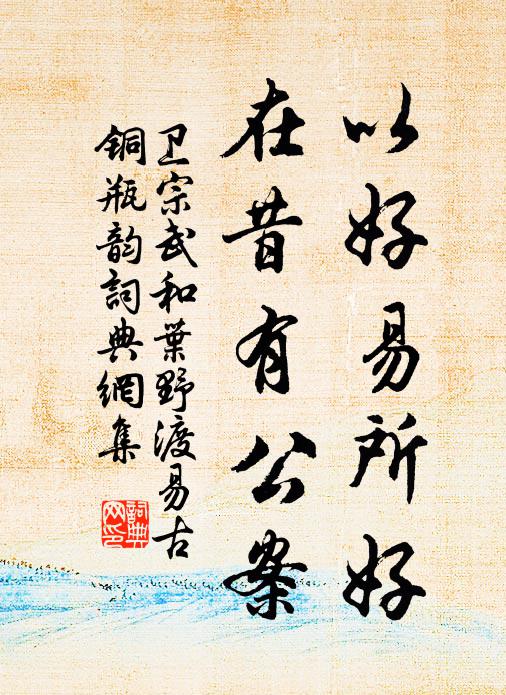 以好易所好
在昔有公案
卫宗武和葉野渡易古
铜瓶韵詞典網集
詞典网印